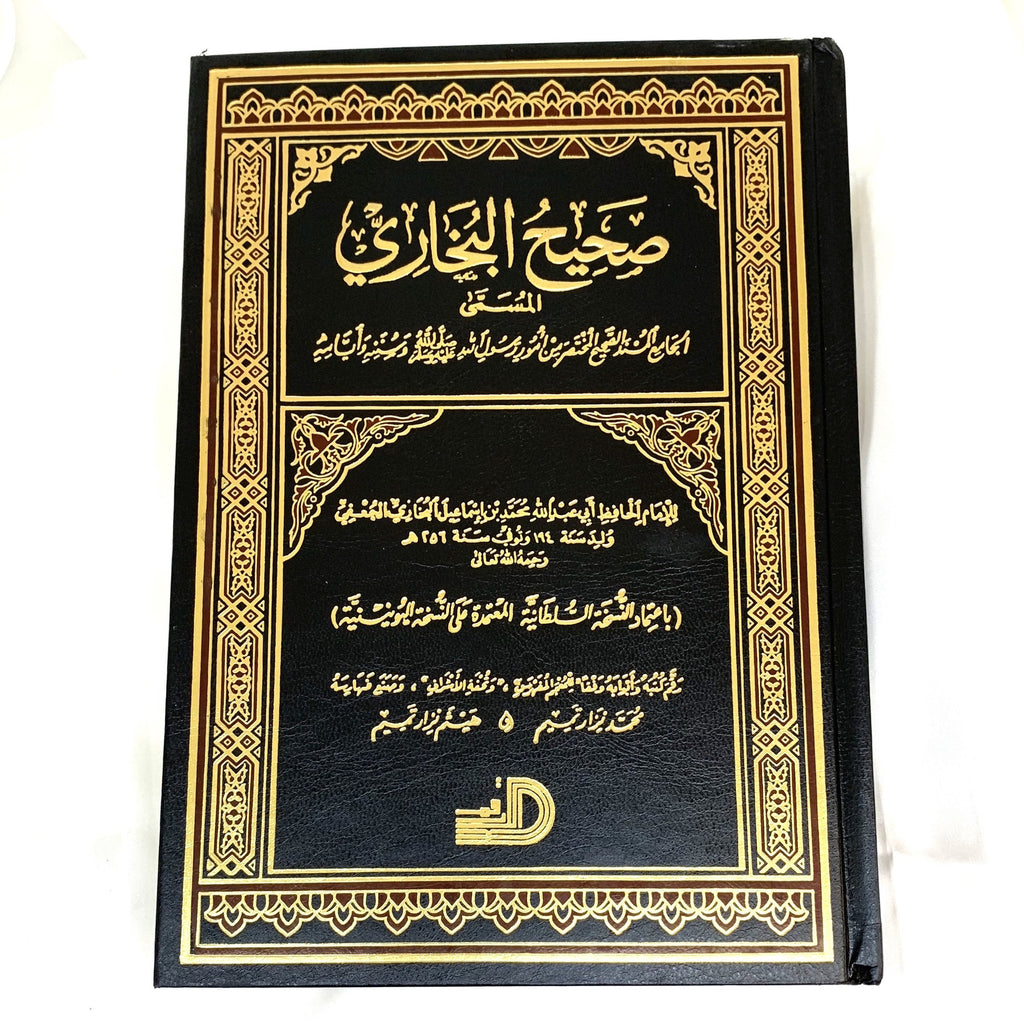 صَحِيحُ البُخَارِيِّ
المُسَمَّى
الجَامِعُ المُسْنَدُ الصَّحِيحُ المُخْتَصَرُ مِنْ أُمُورِ رَسُولِ اللهِ ﷺ وَسُنَنِهِ وَأَيَّامِهِ
لِلإِمَامِ الحَافِظِ أَبِي عَبْدِ اللهِ مُحَمَّدِ بْنِ إِسْمَاعِيلَ البُخَارِيِّ الجُعْفِيِّ
وُلِدَ سَنَة ١٩٤ وَتُوُفِّيَ سَنَة ٢٥٦ هـ
رَحِمَهُ اللهُ تَعَالَى
(بِاعْتِمَادِ النُّسْخَةِ السُّلْطَانِيَّةِ المُعْتَمَدَةِ عَلَى النُّسْخَةِ اليُونِينِيَّةِ)
رَقَّمَ كُتُبَهُ وَأَبْوَابَهُ وَفْقًا "لِلْمُعْجَمِ المُفَهْرَسِ"، "وَتُحْفَةِ الأَشْرَافِ"، وَصَنَعَ فَهَارِسَهُ
مُحَمَّد نِزَار تَمِيم و هَيْثَم نِزَار تَمِيم